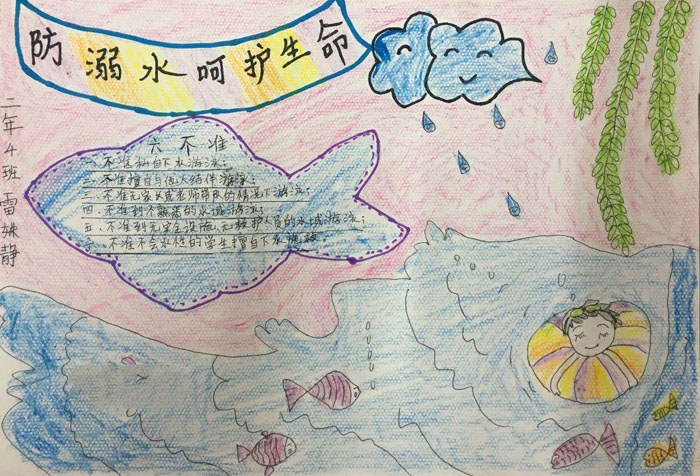 防溺水呵护生命
二年4班 雷姝静
六不准
一、不准私自下水游泳;
二、不准擅自与他人结伴游泳;
三、不准无家长或老师带队的情况下游泳;
四、不准到不熟悉的水域游泳;
五、不准到无安全设施、无救护人员的水域游泳;
六、不准不会水性的学生擅自下水施救。